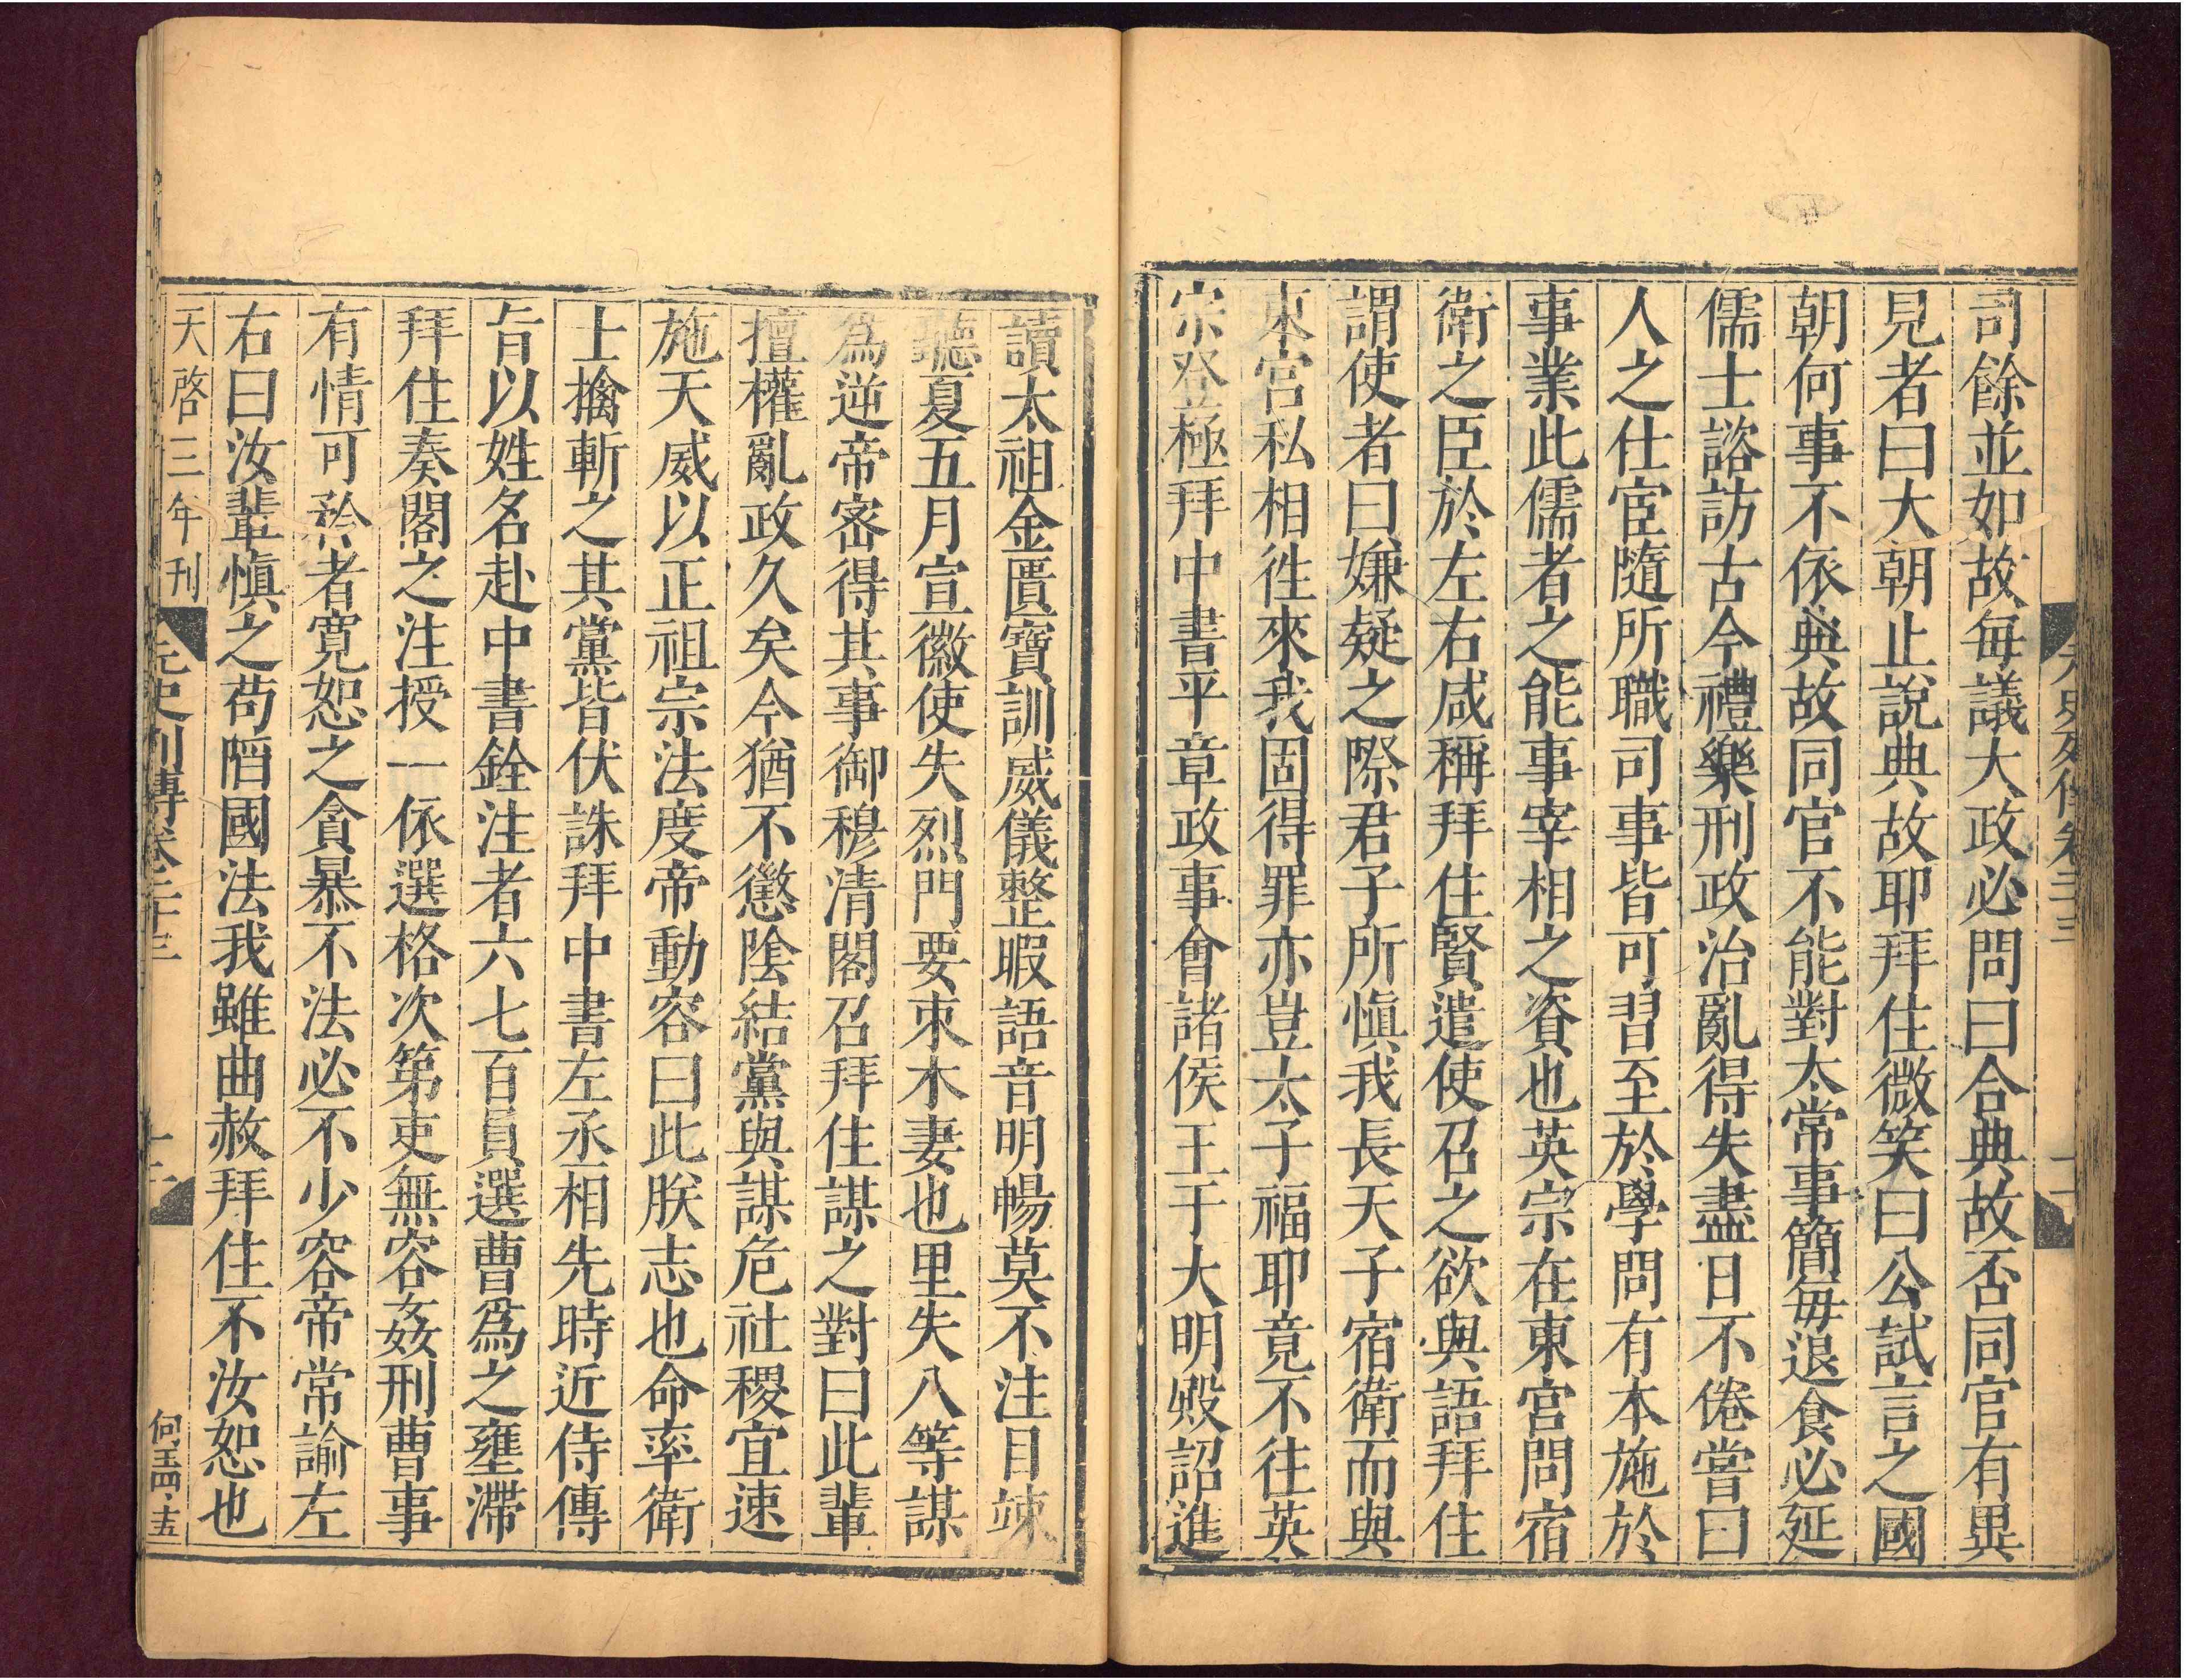 元史列傳卷二十三
司餘並如故每議大政必問曰合典故否同官有異
見者曰大朝止說典故耶拜住微笑曰公試言之國
朝何事不依典故同官不能對太常事簡每退食必延
儒士諮訪古今禮樂刑政治亂得失盡日不倦嘗曰
人之仕宦隨所職司事皆可習至於學問有本施於
事業此儒者之能事宰相之資也英宗在東宮問宿
衛之臣於左右咸稱拜住賢遣使召之欲與語拜住
謂使者曰嫌疑之際君子所慎我長天子宿衛而與
東宮私相徃來我固得罪亦豈太子福耶竟不往英
宗登極拜中書平章政事會諸侯王于大明殿詔進
讀太祖金匱寶訓威儀整暇語音明暢莫不注目竦
聽夏五月宣徽使失烈門要束木妻也里失八等謀
為逆帝密得其事御穆清閣召拜住謀之對曰此輩
擅權亂政久矣今猶不懲陰結黨與謀危社稷宜速
施天威以正祖宗法度帝動容曰此朕志也命率衛
士擒斬之其黨皆伏誅拜中書左丞相先時近侍傳
旨以姓名赴中書銓注者六七百員選曹為之壅滯
拜住奏閣之注授一依選格次第吏無容姦刑曹事
有情可矜者寬恕之貪暴不法必不少容帝常諭左
右曰汝輩慎之苟陷國法我雖曲赦拜住不汝恕也
天啓三年刊 元史列傳卷二十三 十二